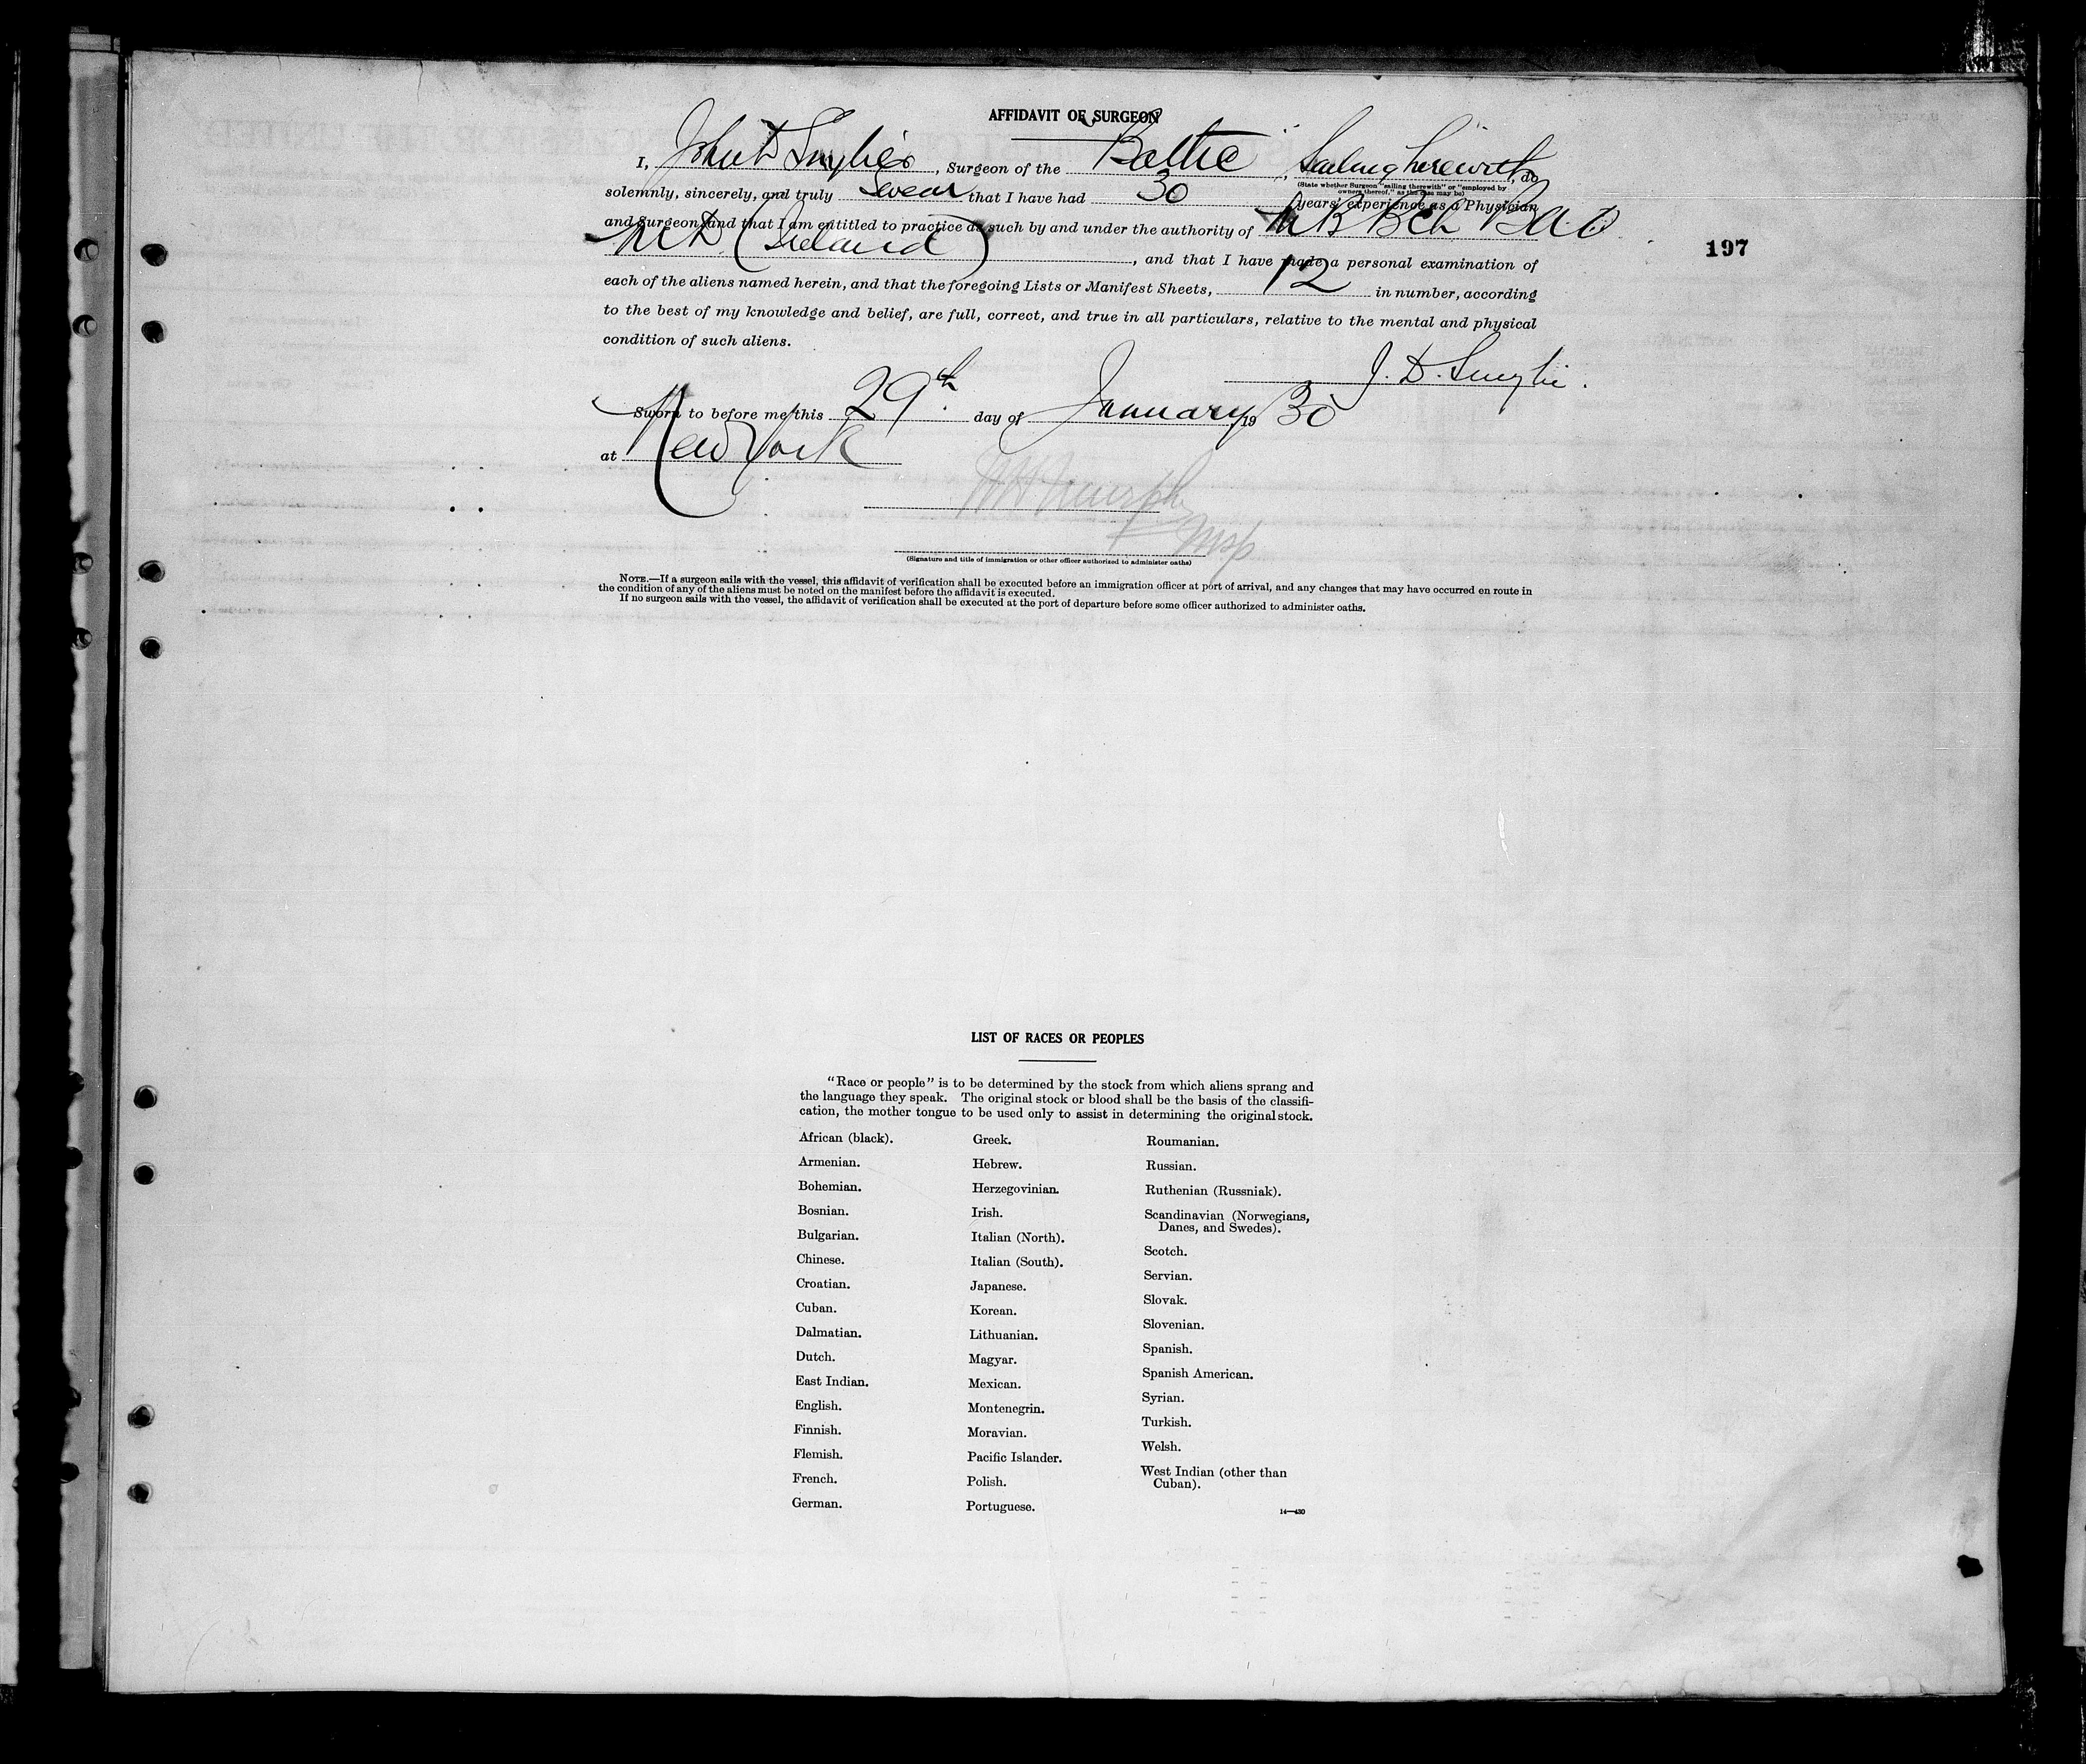 AFFIDAVIT OF SURGEON
I, John D Smylie, Surgeon of the Baltic, Sailing herewith, do
(State whether Surgeon "sailing therewith" or "employed by
owners thereof," as the case may be)
solemnly, sincerely, and truly Swear that I have had 30 years' experience as a Physician
and Surgeon, and that I am entitled to practice as such by and under the authority of MB BCh BAO
MD (Ireland), and that I have made a personal examination of
197
each of the aliens named herein, and that the foregoing Lists or Manifest Sheets, 12 in number, according
to the best of my knowledge and belief, are full, correct, and true in all particulars, relative to the mental and physical
condition of such aliens.
J. D. Smylie.
Sworn to before me this 29th. day of January, 1930
at New York
Murphy
Insp
(Signature and title of immigration or other officer authorized to administer oaths)
NOTE.—If a surgeon sails with the vessel, this affidavit of verification shall be executed before an immigration officer at port of arrival, and any changes that may have occurred en route in
the condition of any of the aliens must be noted on the manifest before the affidavit is executed.
If no surgeon sails with the vessel, the affidavit of verification shall be executed at the port of departure before some officer authorized to administer oaths.
LIST OF RACES OR PEOPLES
"Race or people" is to be determined by the stock from which aliens sprang and
the language they speak. The original stock or blood shall be the basis of the classifi-
cation, the mother tongue to be used only to assist in determining the original stock.
African (black).
Armenian.
Bohemian.
Bosnian.
Bulgarian.
Chinese.
Croatian.
Cuban.
Dalmatian.
Dutch.
East Indian.
English.
Finnish.
Flemish.
French.
German.
Greek.
Hebrew.
Herzegovinian.
Irish.
Italian (North).
Italian (South).
Japanese.
Korean.
Lithuanian.
Magyar.
Mexican.
Montenegrin.
Moravian.
Pacific Islander.
Polish.
Portuguese.
Roumanian.
Russian.
Ruthenian (Russniak).
Scandinavian (Norwegians,
Danes, and Swedes).
Scotch.
Servian.
Slovak.
Slovenian.
Spanish.
Spanish American.
Syrian.
Turkish.
Welsh.
West Indian (other than
Cuban).
14—430